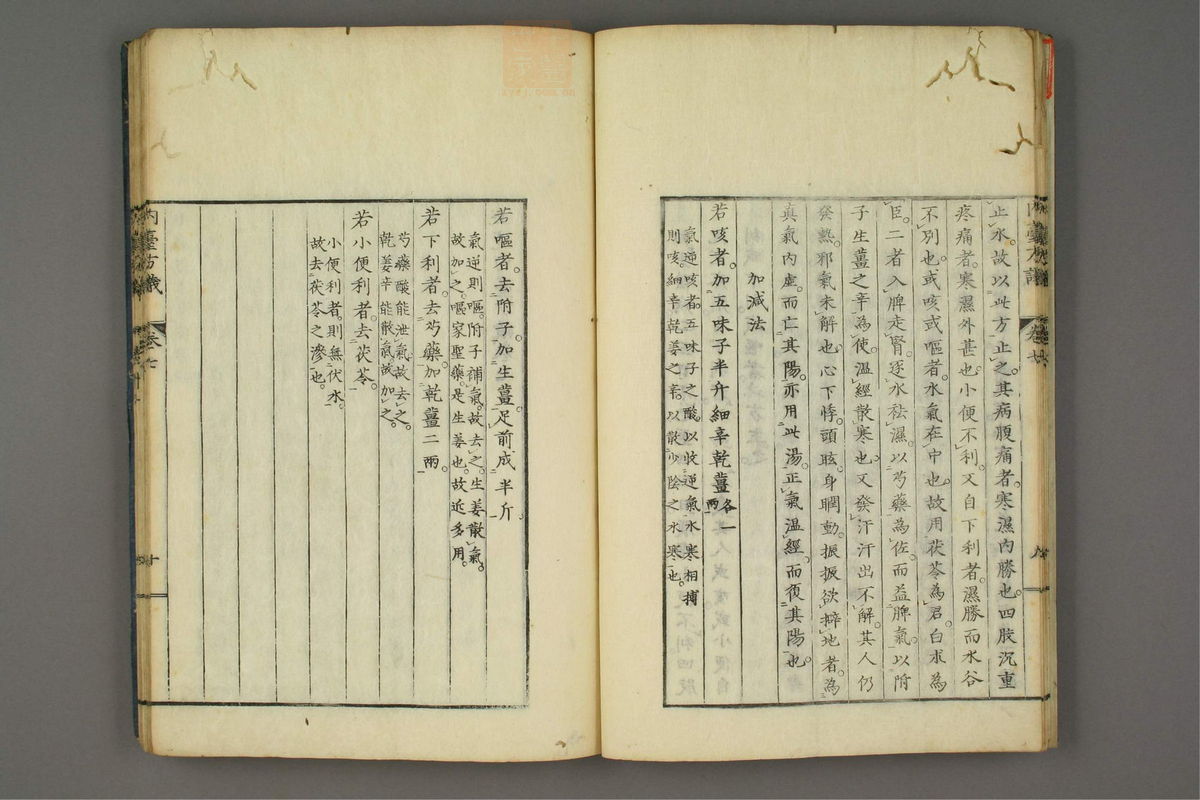 止水。故以此方止之。其病腹痛者。寒濕內勝也。四肢沉重
疼痛者。寒濕外甚也。小便不利。又自下利者。濕勝而水谷
不別也。或咳或嘔者。水氣在中也。故用茯苓為君。白朮為
臣。二者入脾走腎。逐水祛濕。以芍藥為佐。而益脾氣。以附
子生薑之辛為使。溫經散寒也。又發汗汗出不解。其人仍
發熱。邪氣未解也。心下悸。頭眩身瞤動。振振欲擗地者。為
真氣內虛。而亡其陽。亦用此湯。正氣溫經。而復其陽也。
加減法
若咳者。加五味子半斤細辛乾薑各一兩
氣逆咳者。五味子之酸。以收逆氣水寒相搏
則咳。細辛乾姜之辛。以散少陰之水寒也。
若嘔者。去附子。加生薑。足前成半斤
氣逆則嘔。附子補氣。故去之。生姜散氣。
故加之。嘔家聖藥。是生姜也。故近多用。
若下利者。去芍藥。加乾薑二兩。
芍藥酸能泄氣。故去之。
乾姜辛能散氣。故加之。
若小便利者。去茯苓。
小便利者。則無伏水。
故去茯苓之滲也。
內臺方議
卷七
十